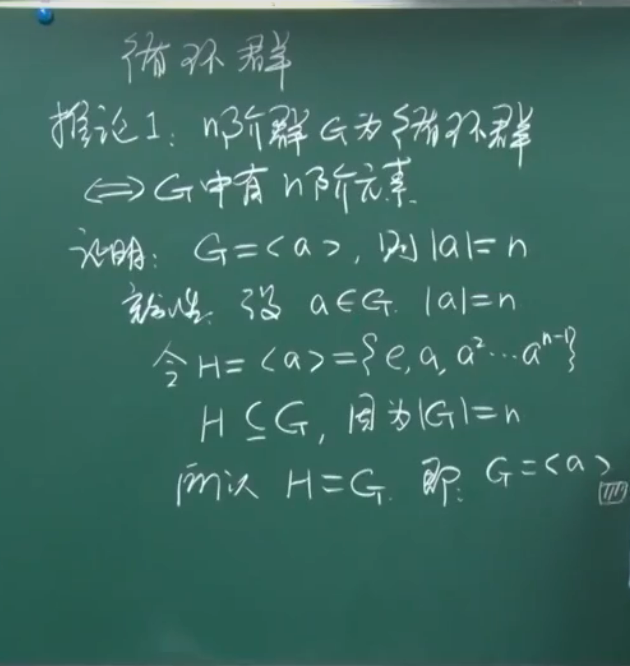 循环群
推论1: n阶群G为循环群
⇔G中有n阶元素
证明: G=<a>, 则|a|=n
充分性. 设 a∈G. |a|=n
令H=<a>={e,a,a²…aⁿ⁻¹}
H⊆G, 因为|G|=n
所以 H=G. 即: G=<a>